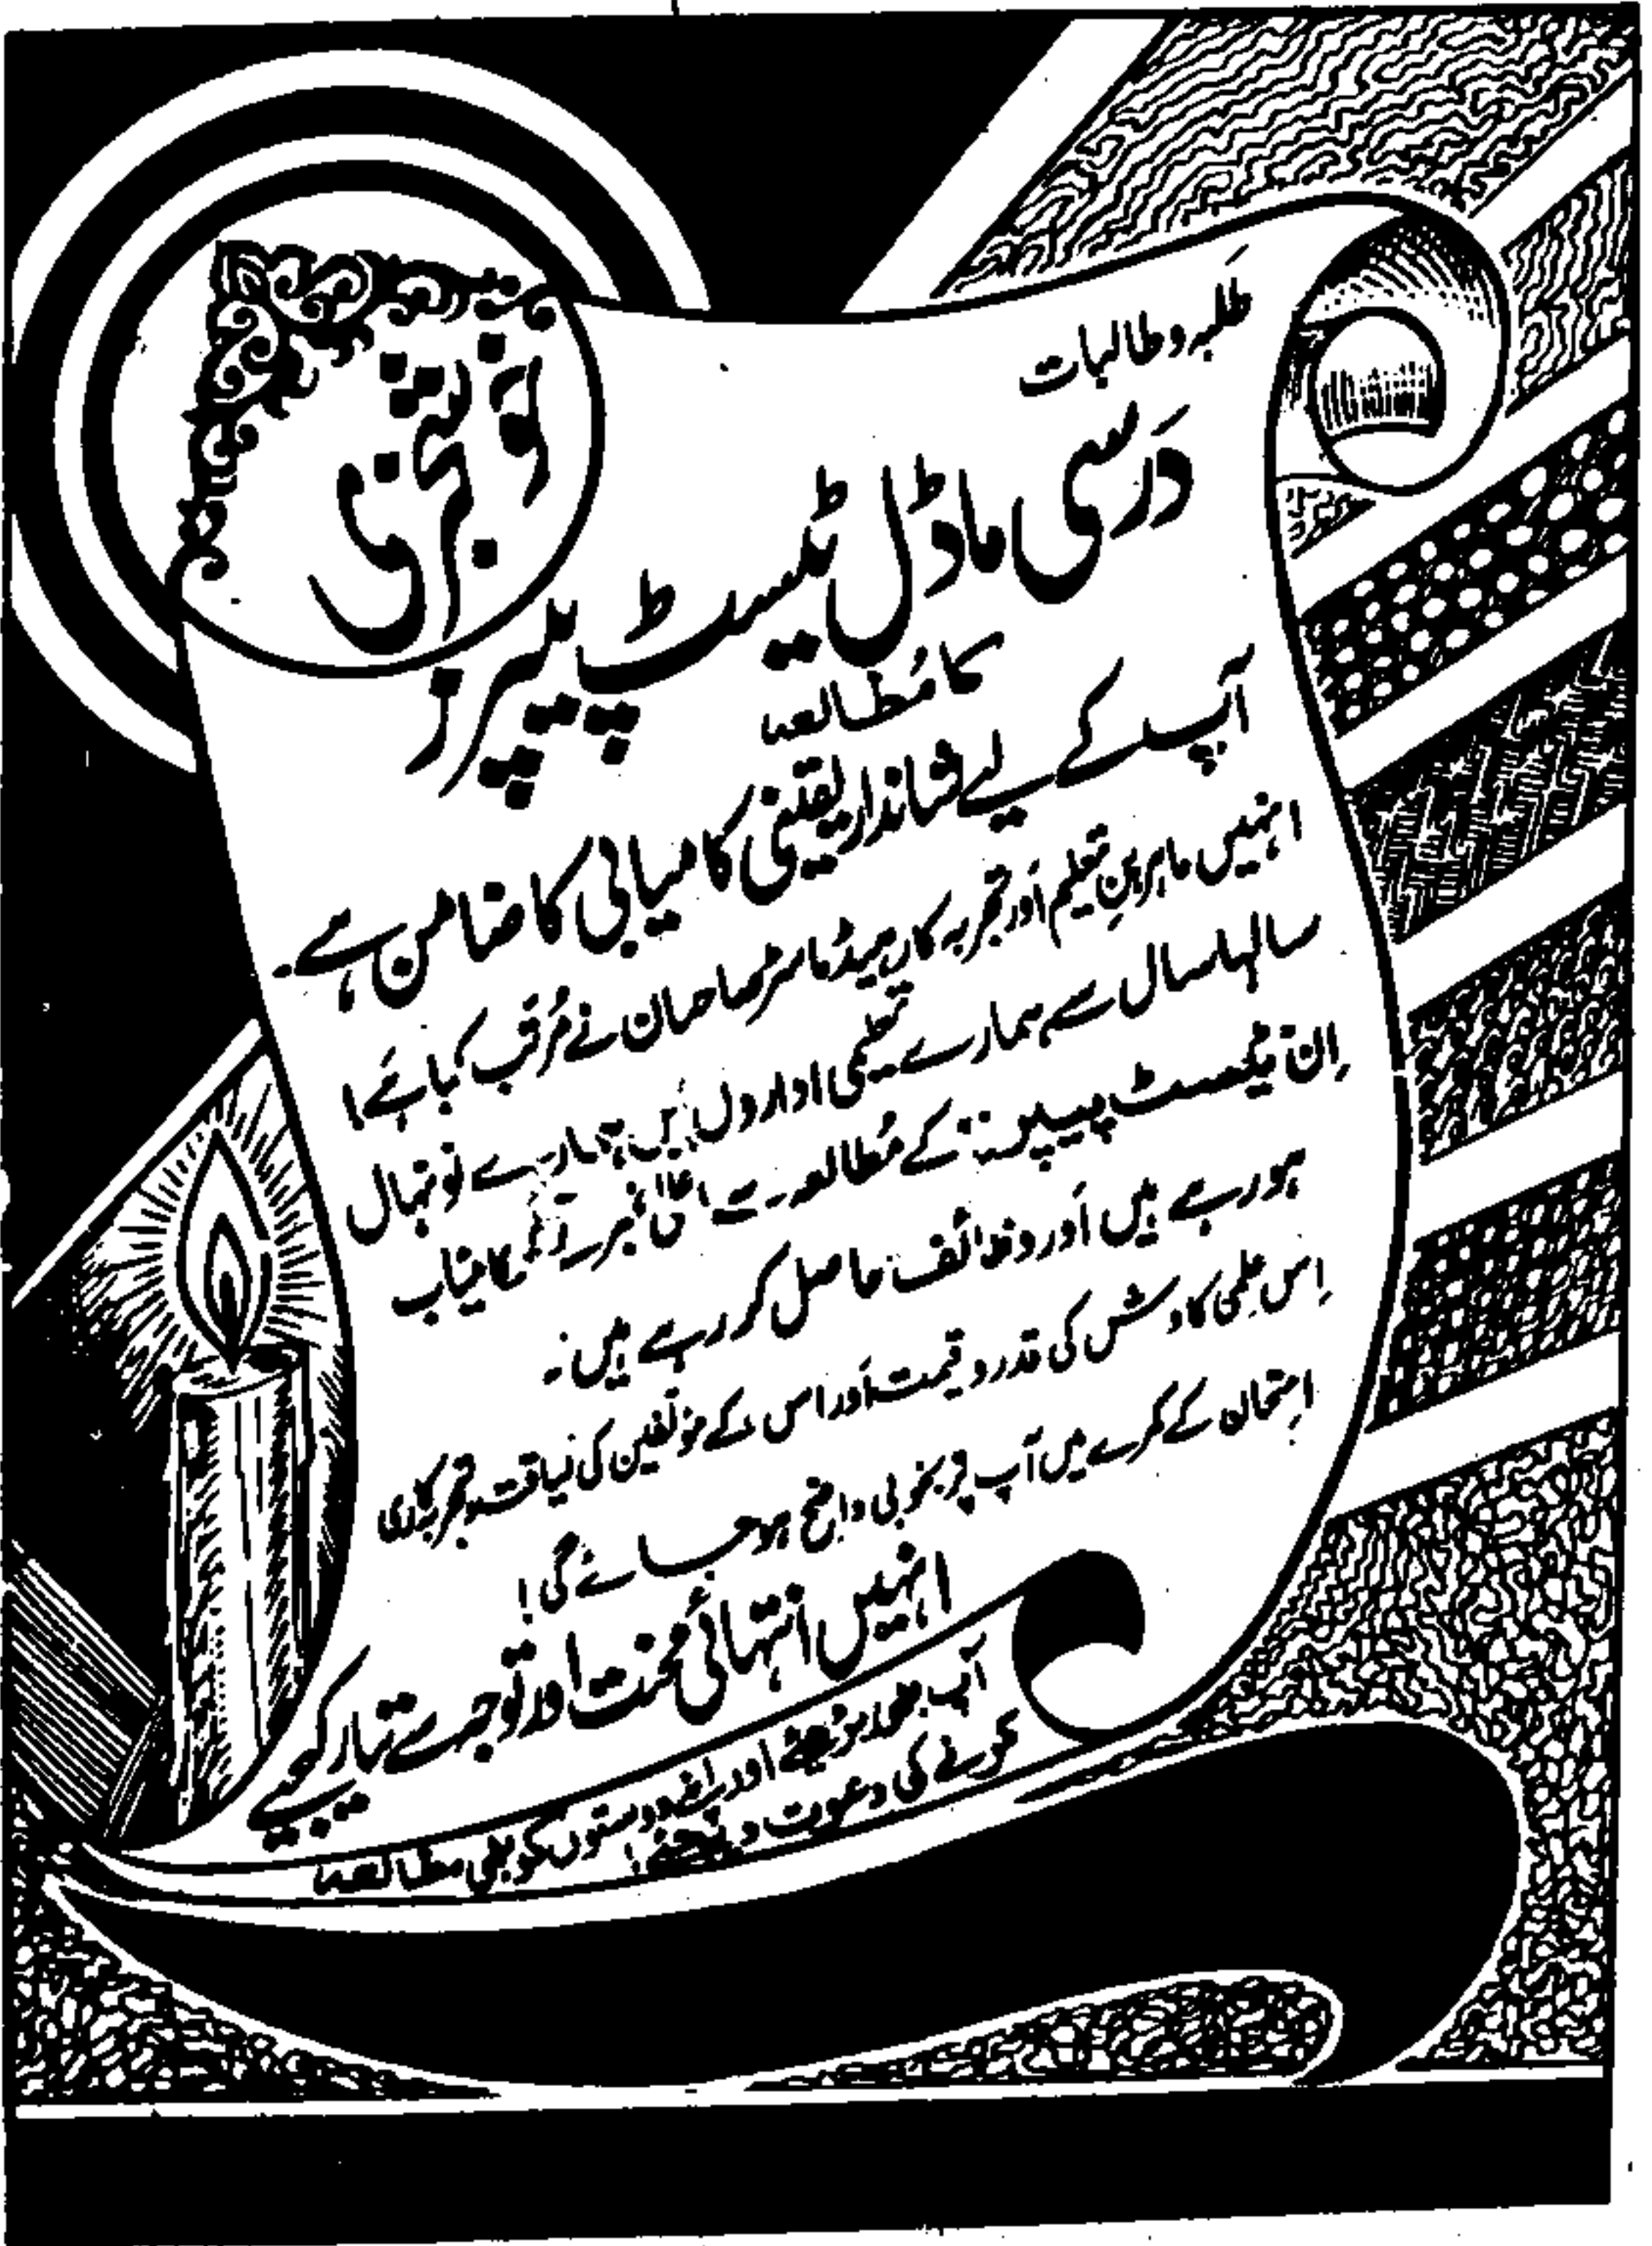 نوٹ
طلبہ و طالبات
درسی ماڈل ٹیسٹ پیپرز
کا مُطالعہ
آپ کے لیے شاندار یقینی کامیابی کا ضامن ہے۔
انہیں ماہرینِ تعلیم اور تجربہ کار ہیڈماسٹر صاحبان نے مُرتب کیا ہے!
سالہا سال سے ہمارے تعلیمی اداروں میں ہمارے نونہال
اِن ٹیسٹ پیپرز کے مُطالعہ سے اعلیٰ نمبر کامیاب
ہو رہے ہیں اور وظائف حاصل کر رہے ہیں۔
اِس علمی کاوش کی قدر و قیمت اور اس کے مؤلفین کی لیاقت و تجربہ کاری
امتحان کے کمرے میں آپ پر بخوبی واضح ہو جائے گی!
انہیں انتہائی محنت اور توجہ سے تیار کیجیے
آپ اور اپنے دوستوں کو بھی مطالعہ
کرنے کی دعوت دیجئے!